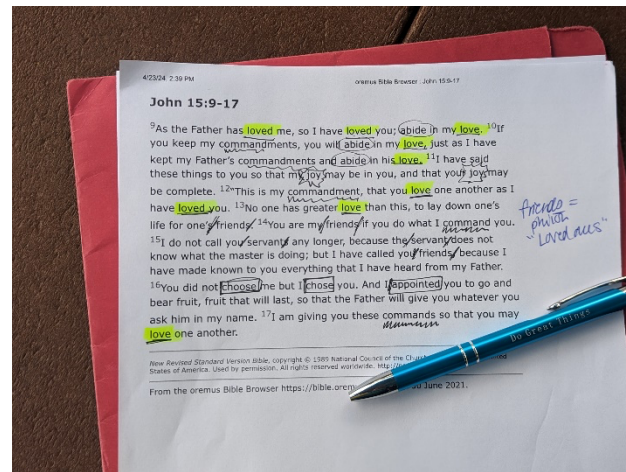 4/23/24, 2:39 PM
oremus Bible Browser : John 15:9-17
John 15:9-17
9As the Father has loved me, so I have loved you; abide in my love. 10If
you keep my commandments, you will abide in my love, just as I have
kept my Father's commandments and abide in his love. 11I have said
these things to you so that my joy may be in you, and that your joy may
be complete. 12"This is my commandment, that you love one another as I
have loved you. 13No one has greater love than this, to lay down one's
life for one's friends. 14You are my friends if you do what I command you.
15I do not call you servants any longer, because the servant does not
know what the master is doing; but I have called you friends, because I
have made known to you everything that I have heard from my Father.
16You did not choose me but I chose you. And I appointed you to go and
bear fruit, fruit that will last, so that the Father will give you whatever you
ask him in my name. 17I am giving you these commands so that you may
love one another.
friends =
"Loved ones"
New Revised Standard Version Bible, copyright © 1989 National Council of the
States of America. Used by permission. All rights reserved worldwide.
From the oremus Bible Browser https://bible.orem June 2021.
Do Great Things